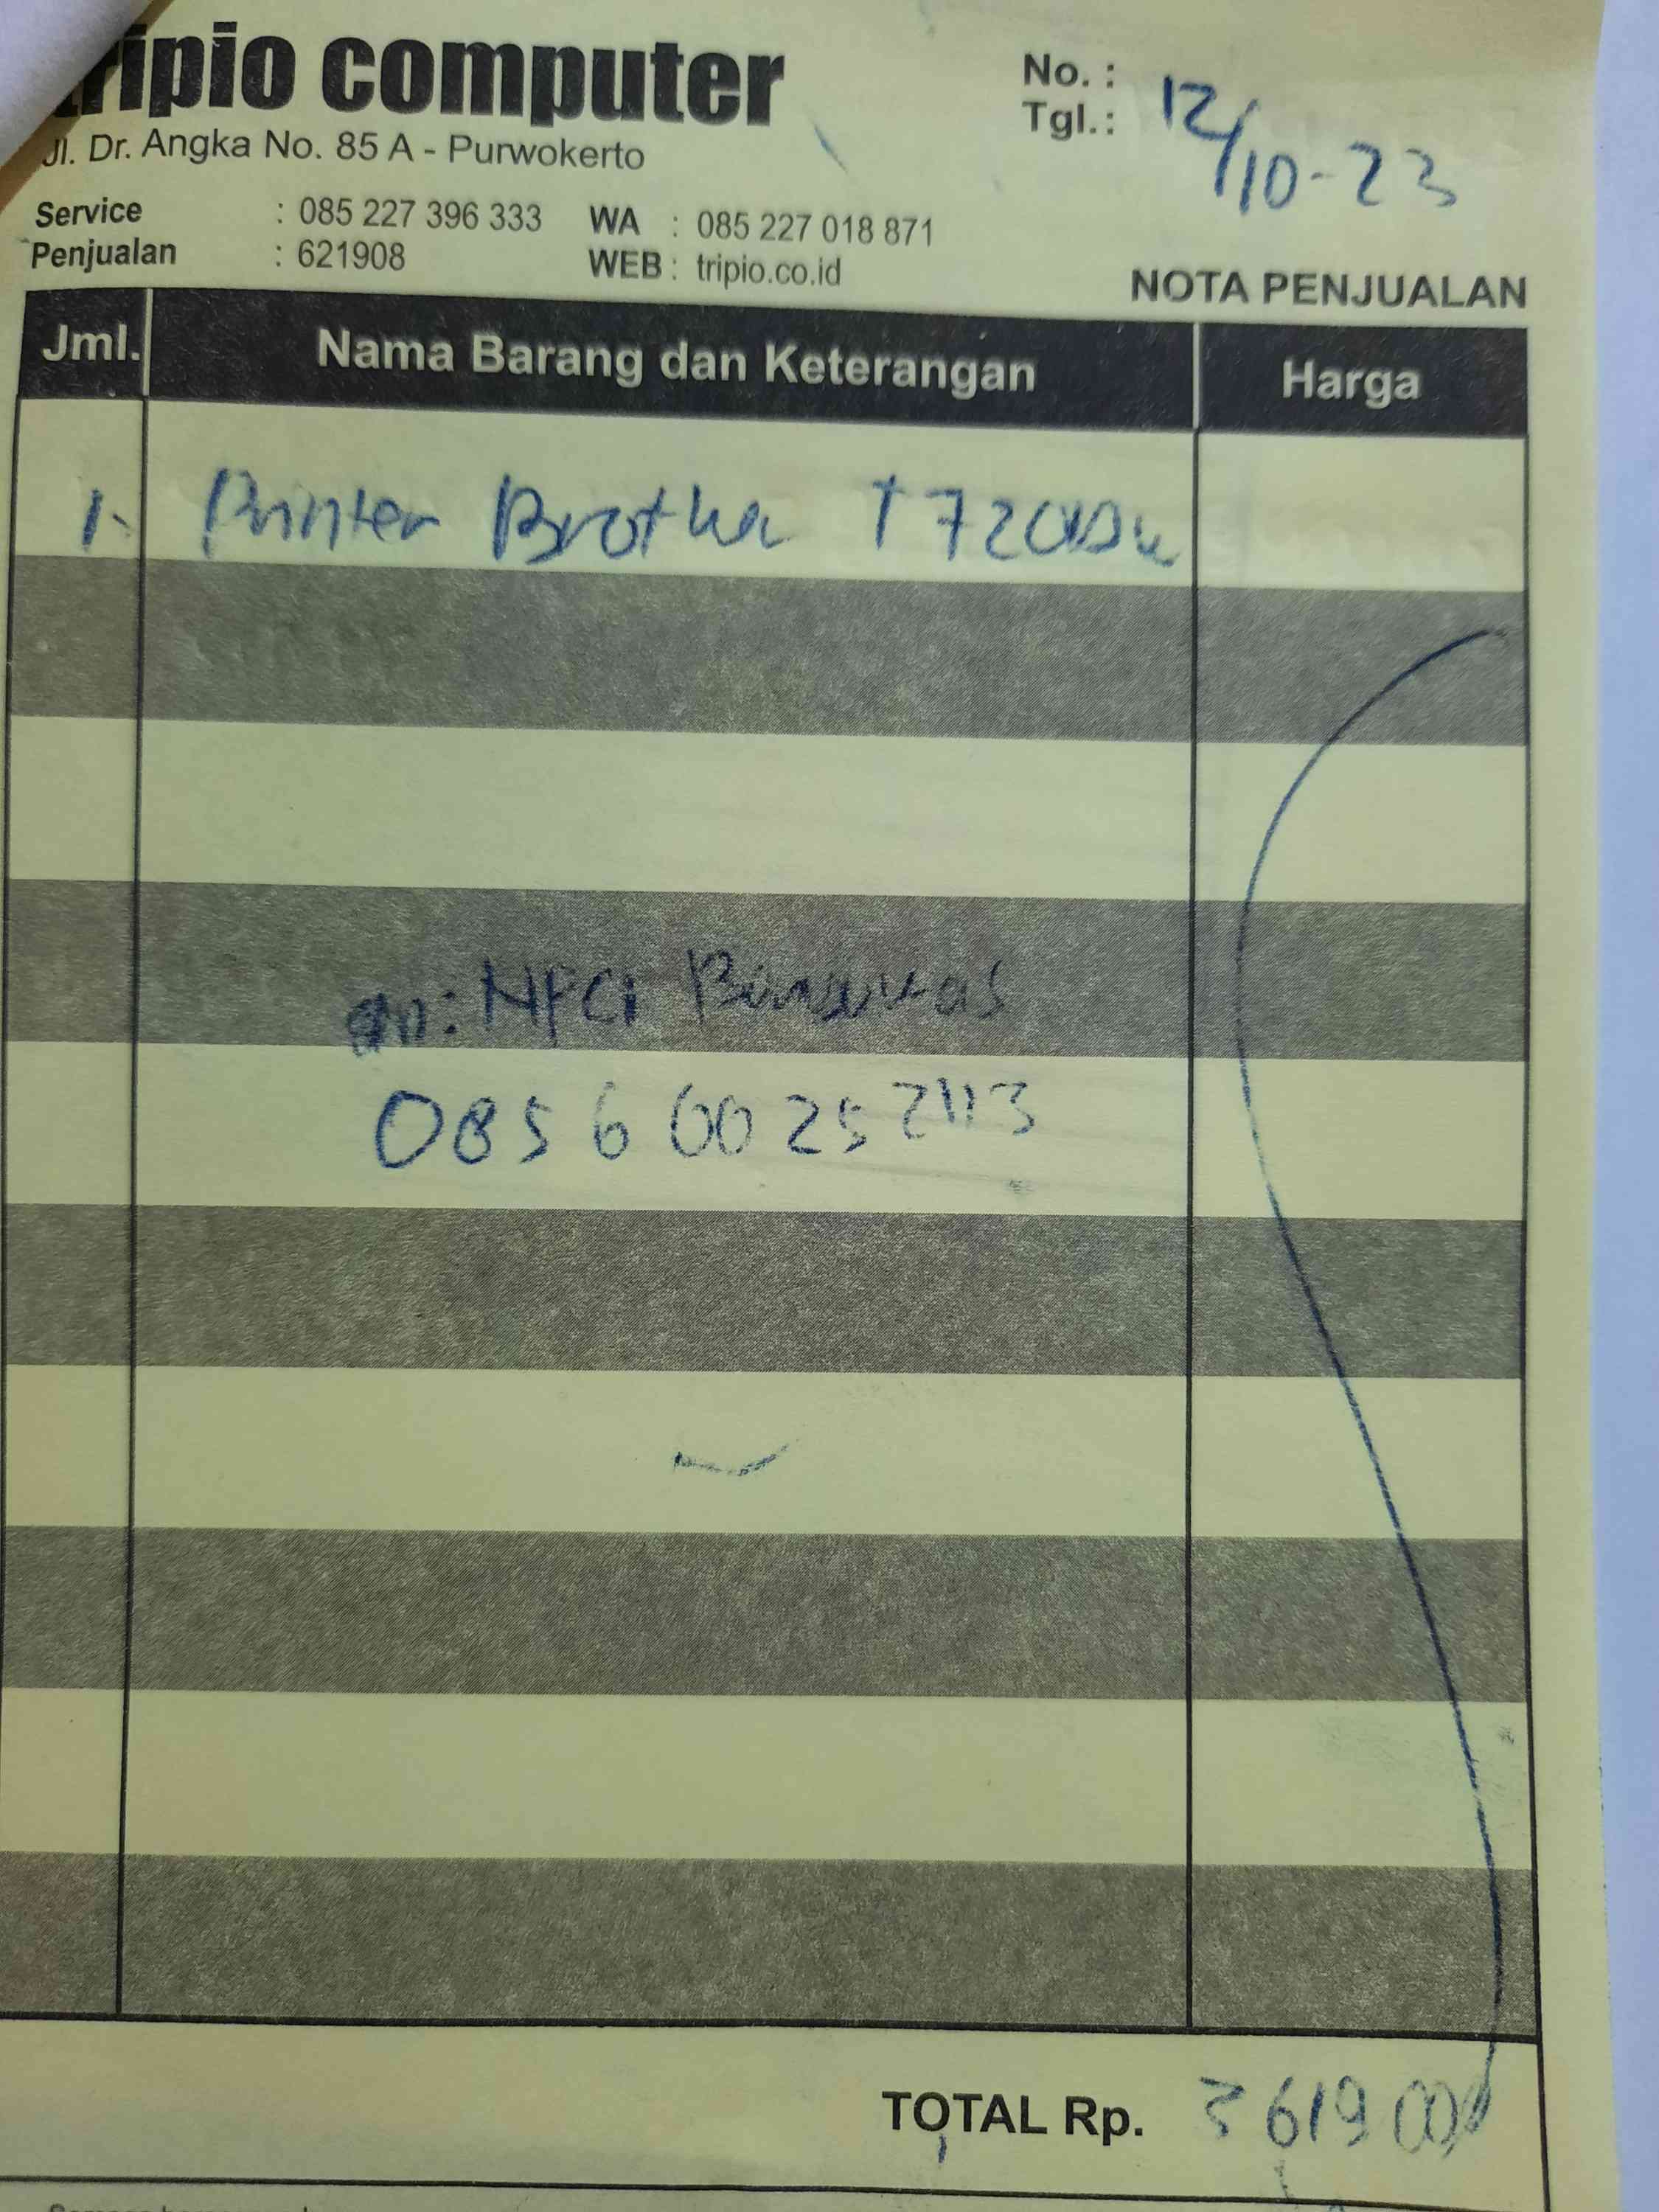 tripio computer
Jl. Dr. Angka No. 85 A - Purwokerto
No. :
Tgl.: 12/10-23
Service : 085 227 396 333 WA : 085 227 018 871
Penjualan : 621908 WEB : tripio.co.id
NOTA PENJUALAN
Jml. Nama Barang dan Keterangan Harga
1. Printer Brother T720DW
an:
0856 00 25 2113
TOTAL Rp. 3619000